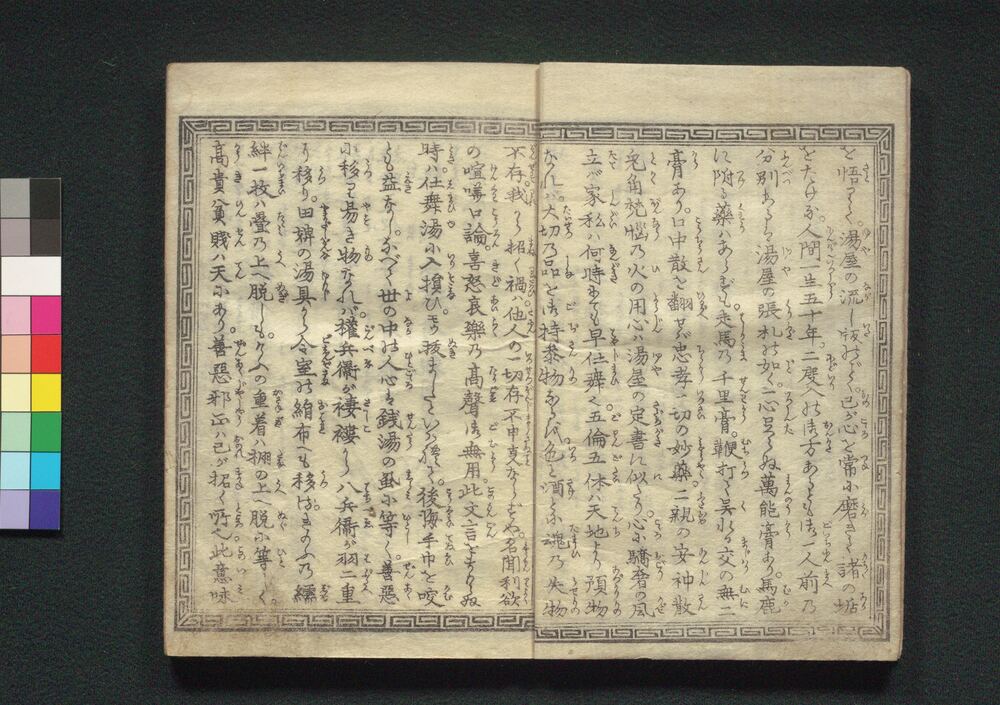 を悟りて。湯屋の流し板のごとく。己が心を常に磨きて諸の垢
をたけな。人間一生五十年。二度入の御方あるとも御一人前の
分別あらば。湯屋の張札の如く一心足らぬ萬能膏あり。馬鹿
に附る藥はあらずも。走馬乃千里膏。鞭打て呉れる交の無二
膏あり。口中散を翻せば忠孝一切の妙藥。二親の安神散
兎角煩悩乃火の用心は湯屋の定書に似たり。心に驕奢の風
立ば家私は何時にても早仕舞く。五倫五体は天地より預物
なれば。大切乃品とは御持参物ならずや。色と酒とに魂乃失物
不存。我から招く禍は他人の一切存不申事ならずや。名聞利欲
の喧嘩口論。喜怒哀樂乃高聲御無用。此文言を守らぬ
時は仕舞湯に入損ひ。モウ抜ましたといふがごとく。後悔手巾を咬
とも益なし。なべて世の中の人心は銭湯の虱に等しく。善惡
に移り易き物なれば。權兵衞が褸から八兵衞が羽二重
に移り。田婢の湯具から令室の絹布にも移る。きのふ乃襦
絆一枚は疊乃上へ脱しも。けふの重着は棚の上へ脱に等しく
高貴貧賤は天にあり。善惡邪正は己が招く所也。此意味